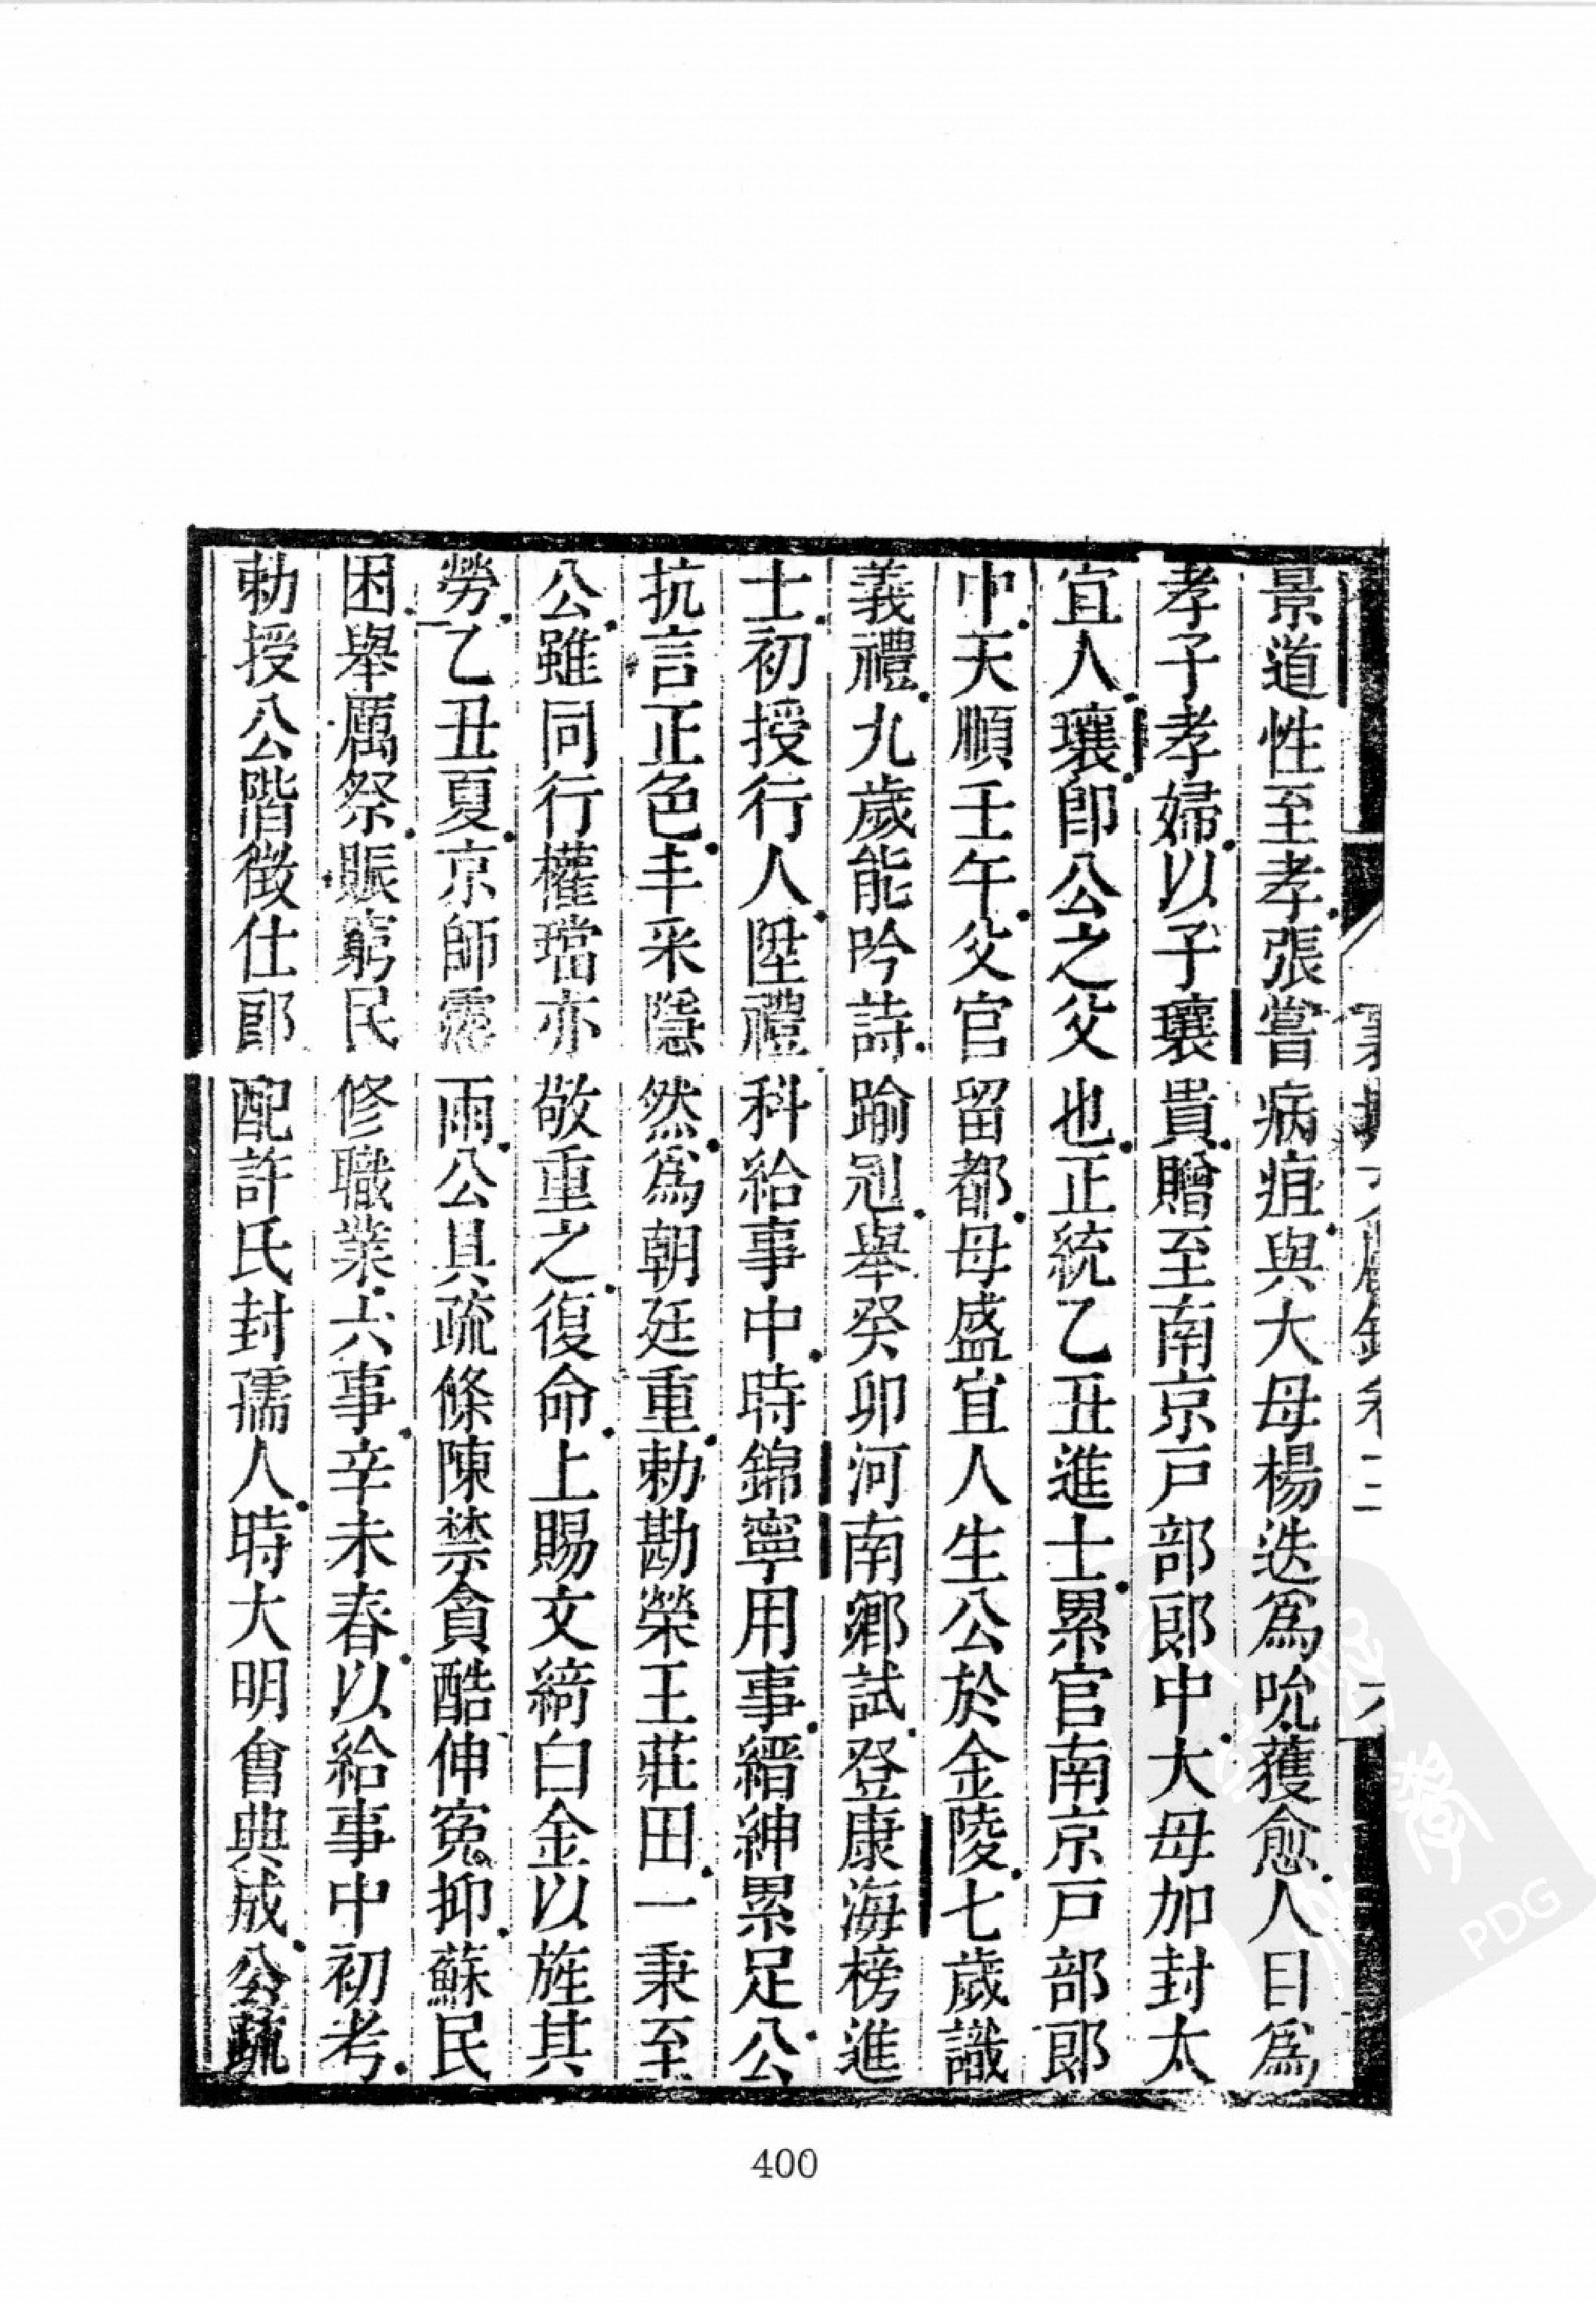 景道性至孝張嘗病疽與大母楊迭爲吮獲愈人目爲
孝子孝婦以子瓖貴贈至南京戸部郎中大母加封太
宜人瓖卽公之父也正統乙丑進士累官南京戸部郎
中天順壬午父官留都母盛宜人生公於金陵七歲識
義禮九歲能吟詩踰冠舉癸卯河南鄉試登康海榜進
士初授行人陞禮科給事中時錦寧用事縉紳累足公
抗言正色丰采隱然爲朝廷重勅勘榮王莊田一秉至
公雖同行權璫亦敬重之復命上賜文綺白金以旌其
勞乙丑夏京師霪雨公具疏條陳禁貪酷伸寃抑蘇民
困舉厲祭賑窮民修職業六事辛未春以給事中初考
勅授公階徵仕郎配許氏封孺人時大明會典成公疏
400
PDG